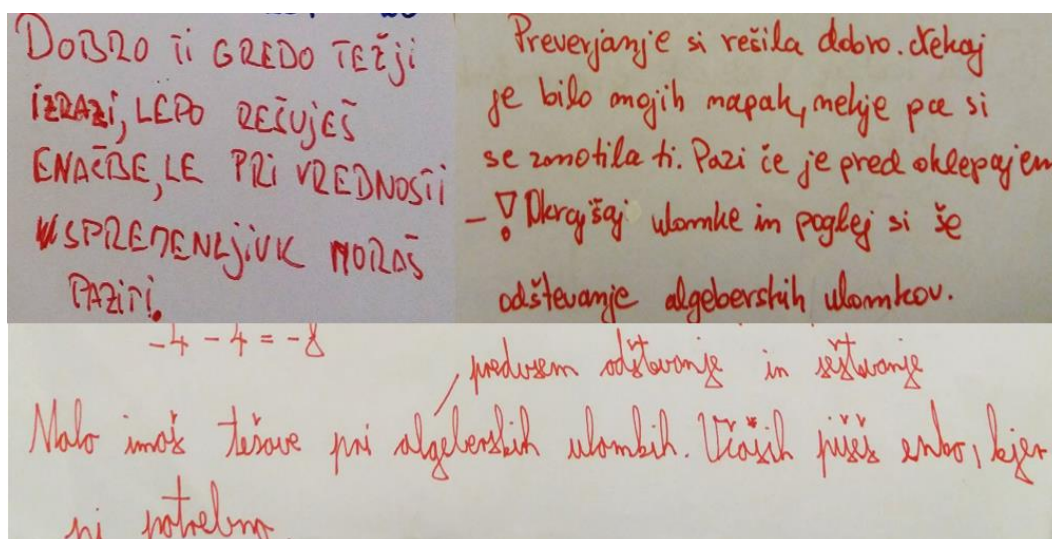 DOBRO TI GREDO TEŽJI
IZRAZI, LEPO REŠUJEŠ
ENAČBE, LE PRI VREDNOSTI
SPREMENLJIVK MORAŠ
PAZITI.
Preverjanje si rešila dobro. Nekaj
je bilo mojih napak, nekje pa si
se zmotila ti. Pazi če je pred oklepajem
-! Okrajšaj ulomke in poglej si še
odštevanje algeberskih ulomkov.
-4 - 4 = -8
predvsem odštevanje in seštevanje
Malo imaš težave pri algeberskih ulomkih. Včasih pišeš enko, kjer
ni potrebno